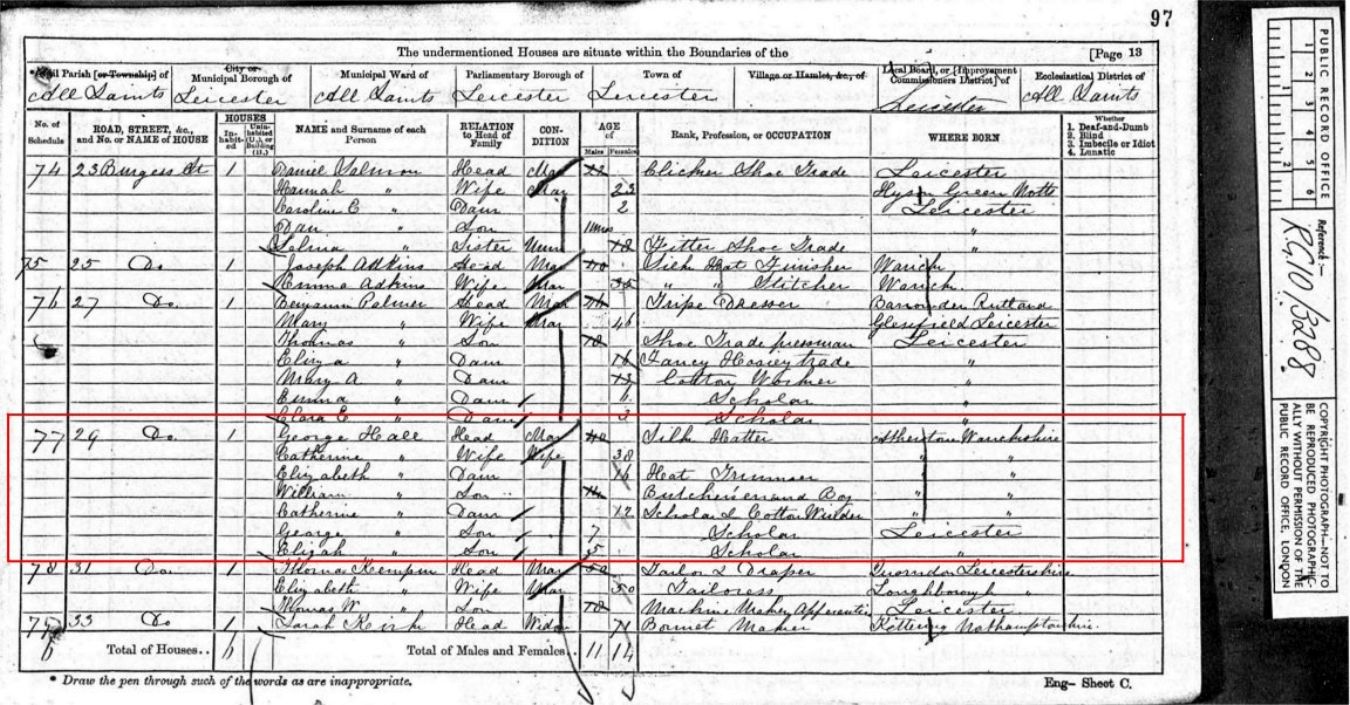 97
The undermentioned Houses are situate within the Boundaries of the [Page 13
Civil Parish [or Township] of City or Municipal Borough of Municipal Ward of Parliamentary Borough of Town of Village or Hamlet, &c., of Local Board, or [Improvement Commissioners District] of Ecclesiastical District of
All Saints Leicester All Saints Leicester Leicester Leicester All Saints
No. of Schedule ROAD, STREET, &c., and No. or NAME of HOUSE HOUSES Inhabited Uninhabited (U.), or Building (B.) NAME and Surname of each Person RELATION to Head of Family CONDITION AGE of Males Females Rank, Profession, or OCCUPATION WHERE BORN Whether 1. Deaf-and-Dumb 2. Blind 3. Imbecile or Idiot 4. Lunatic
74 23 Burgess St 1 Daniel Salmon Head Mar 22 Clicker Shoe Trade Leicester
Hannah " Wife Mar 23 Hyson Green Notts
Caroline E " Daur 2 Leicester
Dan " Son 11mos "
Selina " Sister Unm 18 Fitter Shoe Trade "
75 25 Do 1 Joseph Adkins Head Mar 40 Silk Hat Finisher Warick
Emma Adkins Wife Mar 35 " " Stitcher Warick
76 27 Do 1 Benjamin Palmer Head Mar Tripe Dresser Barrowden Rutland
Mary " Wife Mar 46 Glenfield Leicester
Thomas " Son 18 Shoe Trade pressman Leicester
Eliza " Daur 16 Fancy Hosiery trade
Mary A " Daur 13 Cotton Worker "
Emma " Daur 6 Scholar "
Clara E " Daur 3 Scholar "
77 29 Do 1 George Hall Head Mar 40 Silk Hatter Atherstone Warickshire
Catherine " Wife Wife 38 " "
Elizabeth " Daur 16 Hat Trimmer "
William " Son 14 Butchers errand Boy " "
Catherine " Daur 12 Scholar & Cotton Winder " "
George " Son 7 Scholar Leicester
Elijah " Son 5 Scholar "
78 31 Do 1 Thomas Kempin Head Mar 50 Tailor & Draper Quorndon Leicestershire
Elizabeth " Wife Mar 50 Tailoress Loughborough "
Thomas W " Son 18 Machine Maker Apprentice Leicester
79 33 Do 1 Sarah Head Widow 71 Bonnet Maker Kettering Nothamptonshire
6 Total of Houses.. 6 Total of Males and Females.. 11 14
* Draw the pen through such of the words as are inappropriate. Eng- Sheet C.
PUBLIC RECORD OFFICE
1 2 3 4 5 6
1 2
Reference:-
RG10/3288
COPYRIGHT PHOTOGRAPH-NOT TO BE REPRODUCED PHOTOGRAPHICALLY WITHOUT PERMISSION OF THE PUBLIC RECORD OFFICE, LONDON